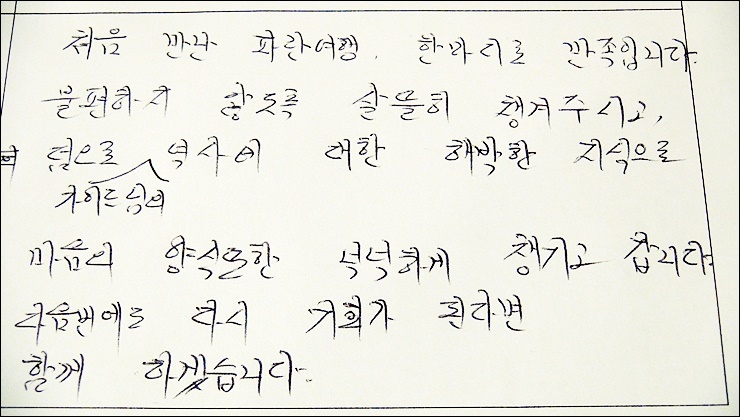 처음 만난 파란여행. 한마디로 만족입니다.
불편하지 않도록 살뜰히 챙겨주시고,
덤으로 역사에 대한 해박한 지식으로
가이드님의
마음의 양식또한 넉넉하게 챙기고 갑니다.
다음번에도 다시 기회가 된다면
함께 하겠습니다.